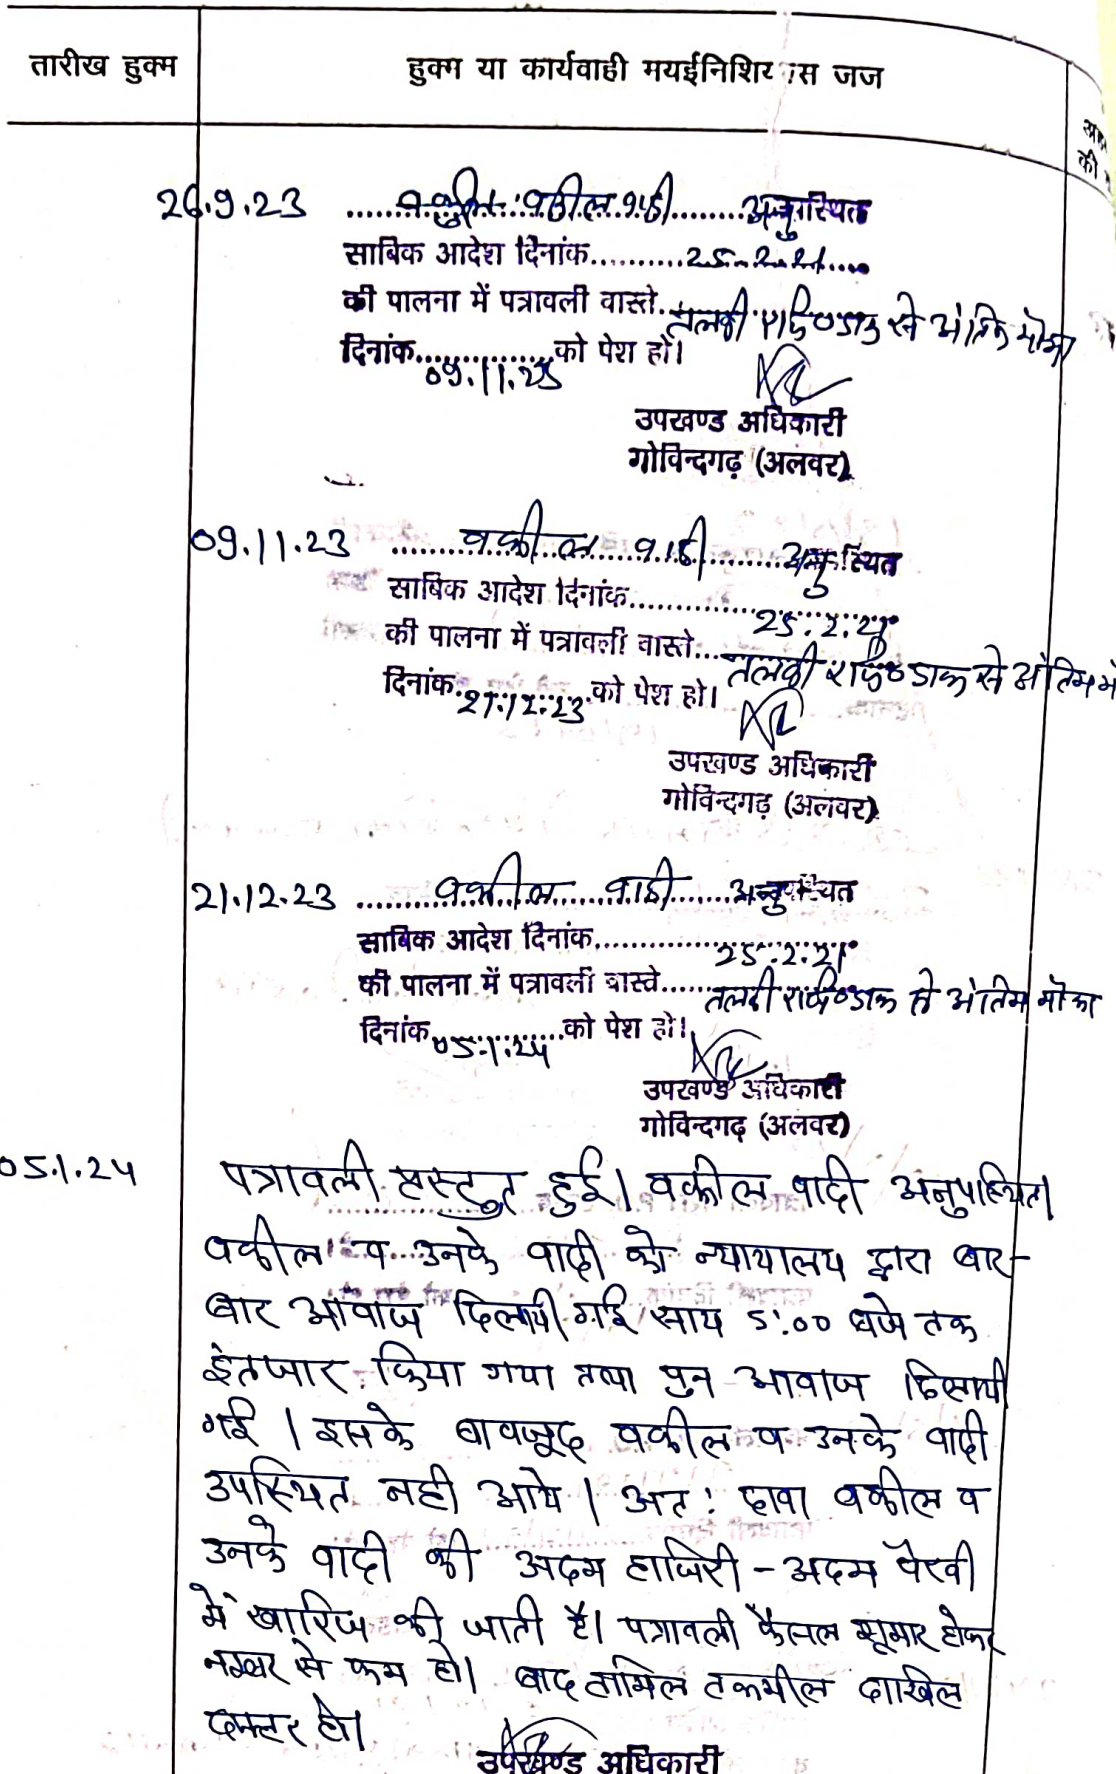 तारीख हुक्म
हुक्म या कार्यवाही मयईनिशिर स जज
की
26.9.23 वकील वादी अनुपस्थित
साबिक आदेश दिनांक..........25.2.21....
की पालना में पत्रावली वास्ते...तलबी रजि० डाक से अंतिम मौका
दिनांक...............को पेश हो।
09.11.23
उपखण्ड अधिकारी
गोविन्दगढ़ (अलवर)
09.11.23 ......वकील वादी......अनुपस्थित
साबिक आदेश दिनांक..............
25.2.21
की पालना में पत्रावली वास्ते...तलबी रजि० डाक से अंतिम मौ
दिनांक..............को पेश हो।
21.12.23
उपखण्ड अधिकारी
गोविन्दगढ़ (अलवर)
21.12.23 ......वकील वादी......अनुपस्थित
साबिक आदेश दिनांक..............
25.2.21
की पालना में पत्रावली वास्ते......तलबी रजि० डाक से अंतिम मौका
दिनांक..............को पेश हो।
05.1.24
उपखण्ड अधिकारी
गोविन्दगढ़ (अलवर)
05.1.24 पत्रावली प्रस्तुत हुई। वकील वादी अनुपस्थित।
वकील व उनके वादी को न्यायालय द्वारा बार-
बार आवाज दिलायी गई साय 5:00 बजे तक
इंतजार किया गया तथा पुन आवाज दिलायी
गई । इसके बावजूद वकील व उनके वादी
उपस्थित नही आये । अत: दावा वकील व
उनके वादी की अदम हाजिरी - अदम पैरवी
में खारिज की जाती है। पत्रावली फैसल शूमार होकर
नम्बर से कम हो। बाद तामिल तकमील दाखिल
दफ्तर हो।
उपखण्ड अधिकारी